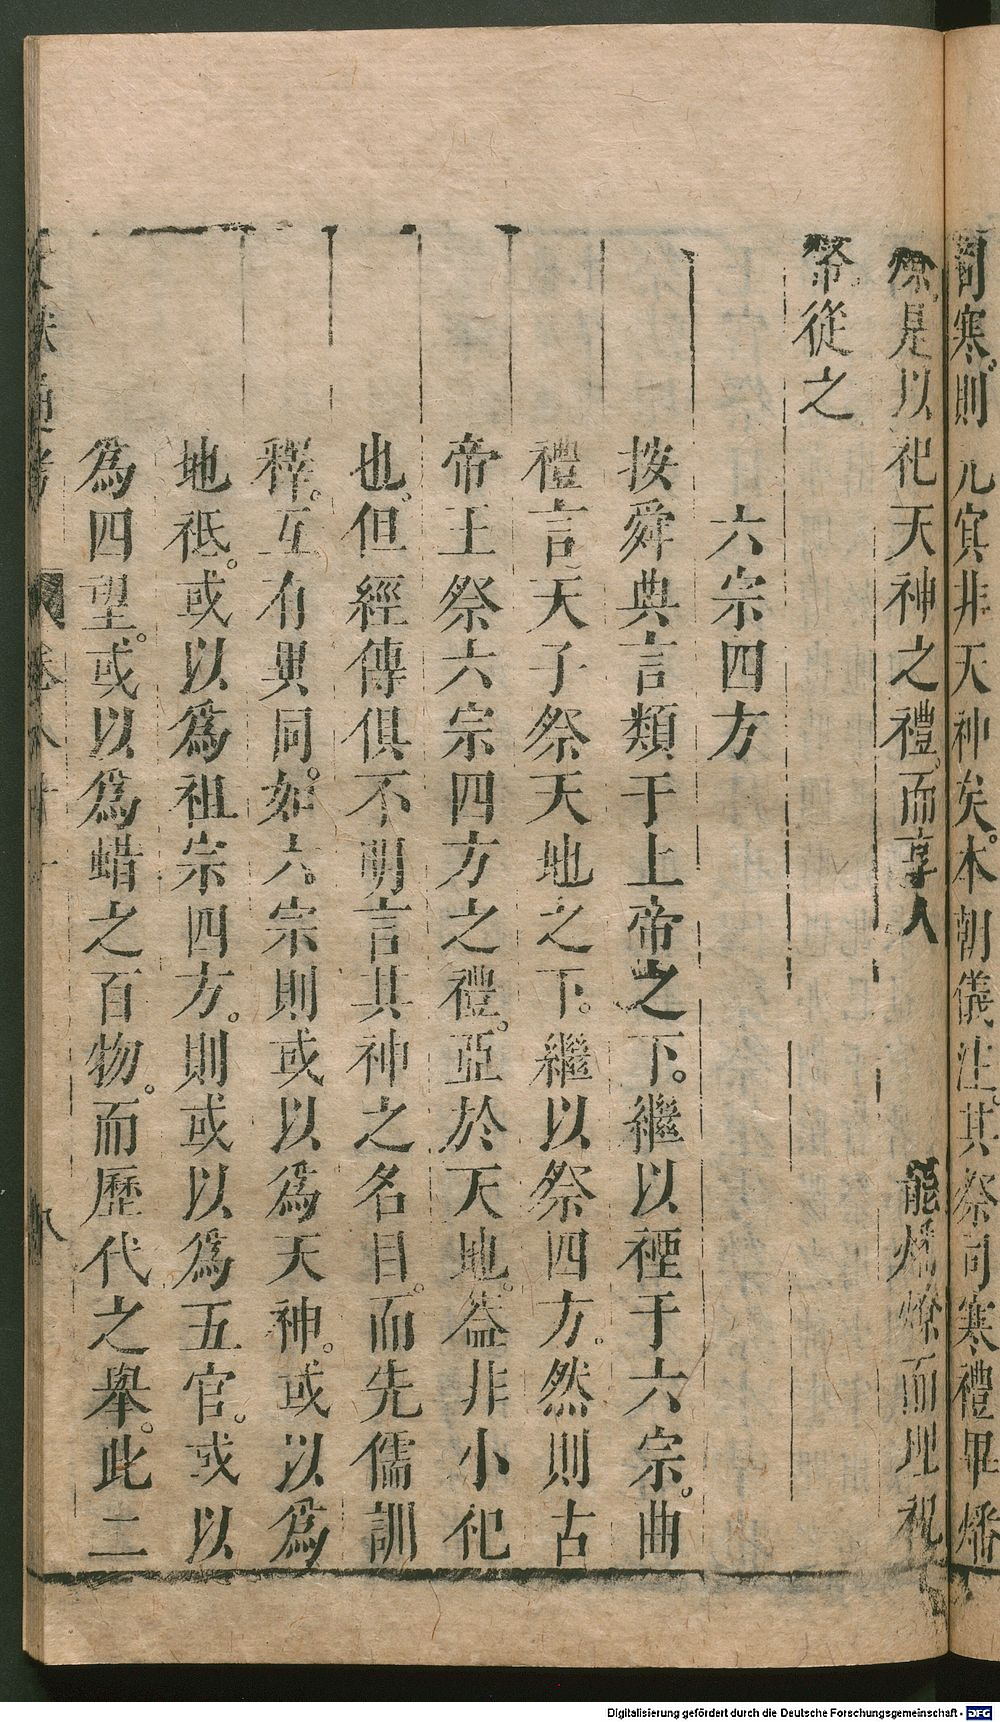 司寒則 元冥非天神矣。本朝儀注。其祭司寒禮畢燔
燎。是以祀天神之禮。而享人 能燔燎而埋祝
幣從之
六宗四方
按舜典言類于上帝之下。繼以禋于六宗。曲
禮言天子祭天地之下。繼以祭四方。然則古
帝王祭六宗四方之禮。亞於天地。葢非小祀
也。但經傳俱不明言其神之名目。而先儒訓
釋。互有異同。如六。宗則或以為天神。或以為
地祗。或以為祖宗四方。則或以為五官。或以
為四望。或以為蜡之百物。而歷代之舉。此二
通考 卷八十 八
Digitalisierung gefördert durch die Deutsche Forschungsgemeinschaft - DFG